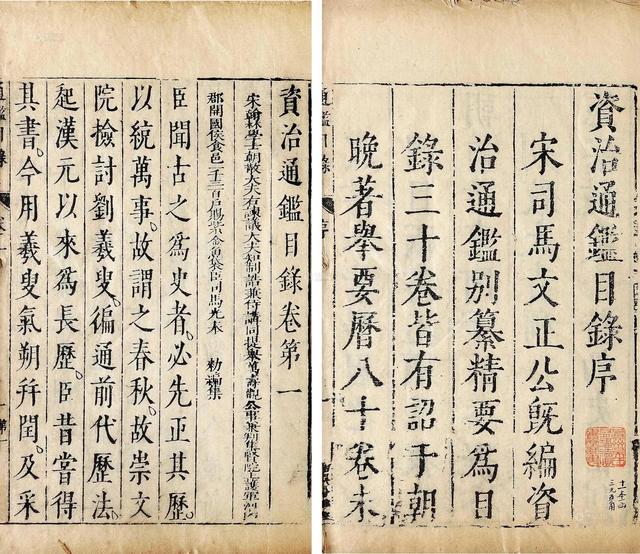 資治通鑑目錄序
宋司馬文正公既編資
治通鑑別纂精要爲目
錄三十卷皆有詔于朝
晚著舉要曆八十卷未
資治通鑑目錄卷第一
宋翰林學士朝散大夫右諫議大夫知制誥兼侍講同提舉萬壽觀公事兼判集賢院上護軍
郡開國侯食邑一千三百戶賜紫金魚袋臣司馬光奉 勑編集
臣聞古之爲史者必先正其歷
以統萬事。故謂之春秋。故崇文
院檢討劉羲叟。徧通前代歷法。
起漢元以來爲長歷。臣昔嘗得
其書。今用羲叟氣朔幷閏。及采
通鑑目錄